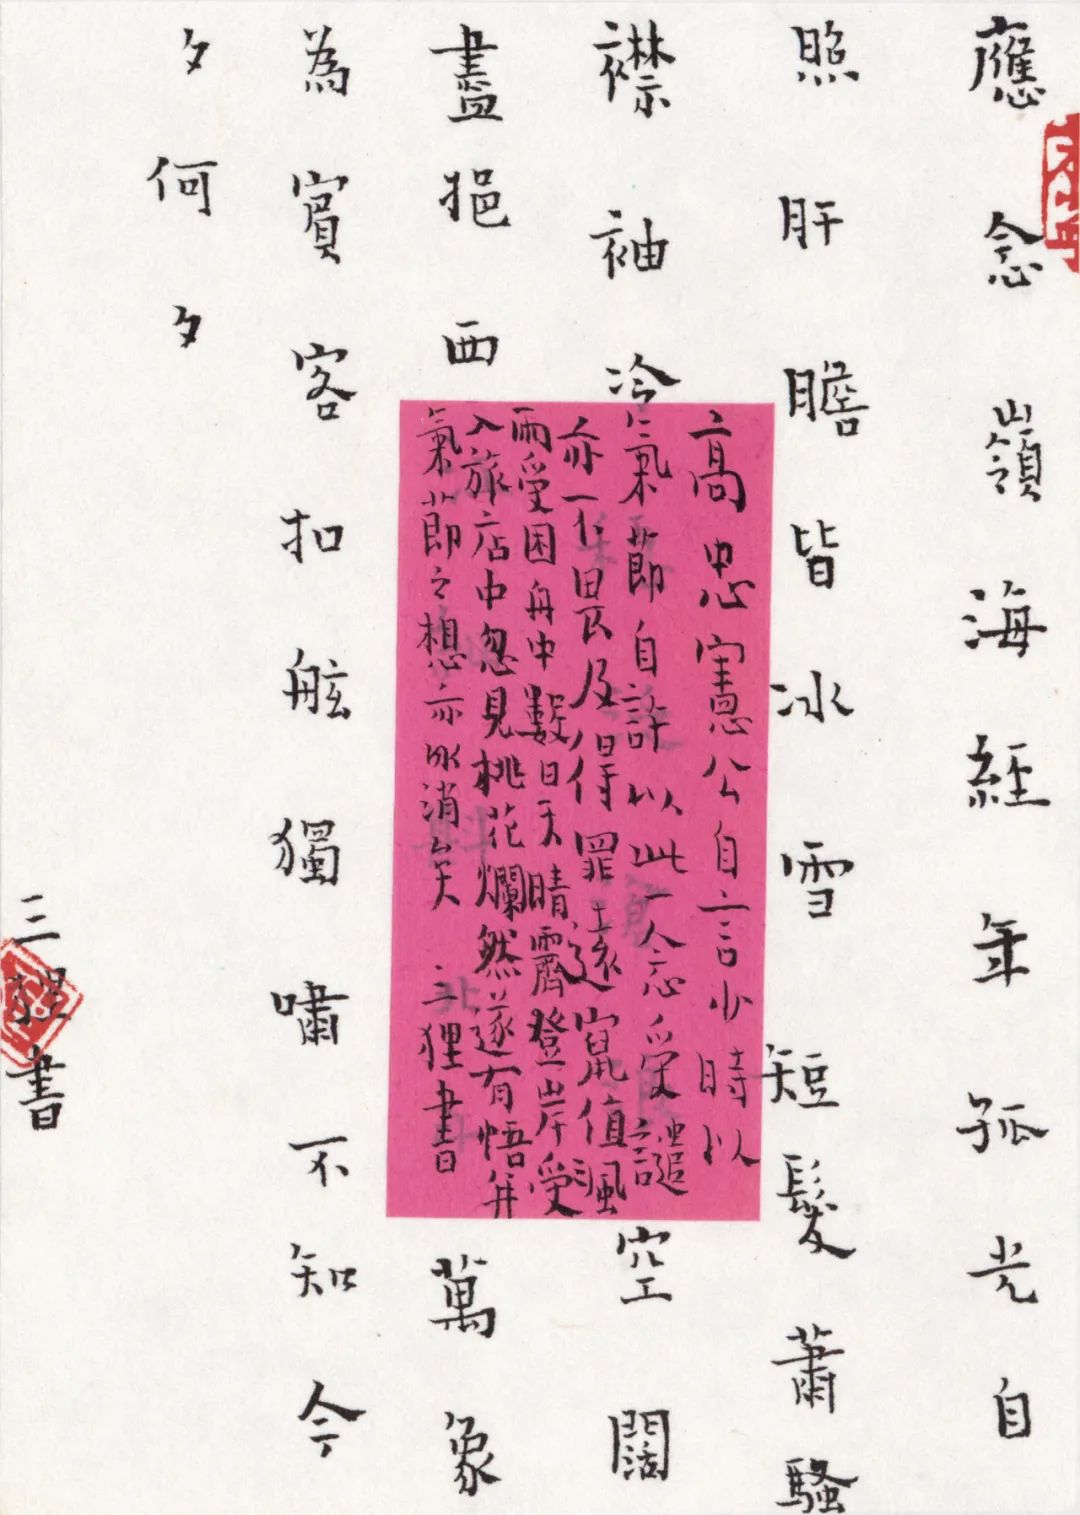 應念嶺海經年孤光自
照肝膽皆冰雪短髮蕭騷
襟袖冷空闊
盡挹西萬象
為賓客扣舷獨嘯不知今
夕何夕
三狸書
高忠憲公自言少時以
氣節自許以此一念受譴
亦不畏及得罪遠竄值風
雨受困舟中數日天晴霽登岸受
入旅店中忽見桃花爛然遂有悟并
氣節之想亦冰消矣 三狸書